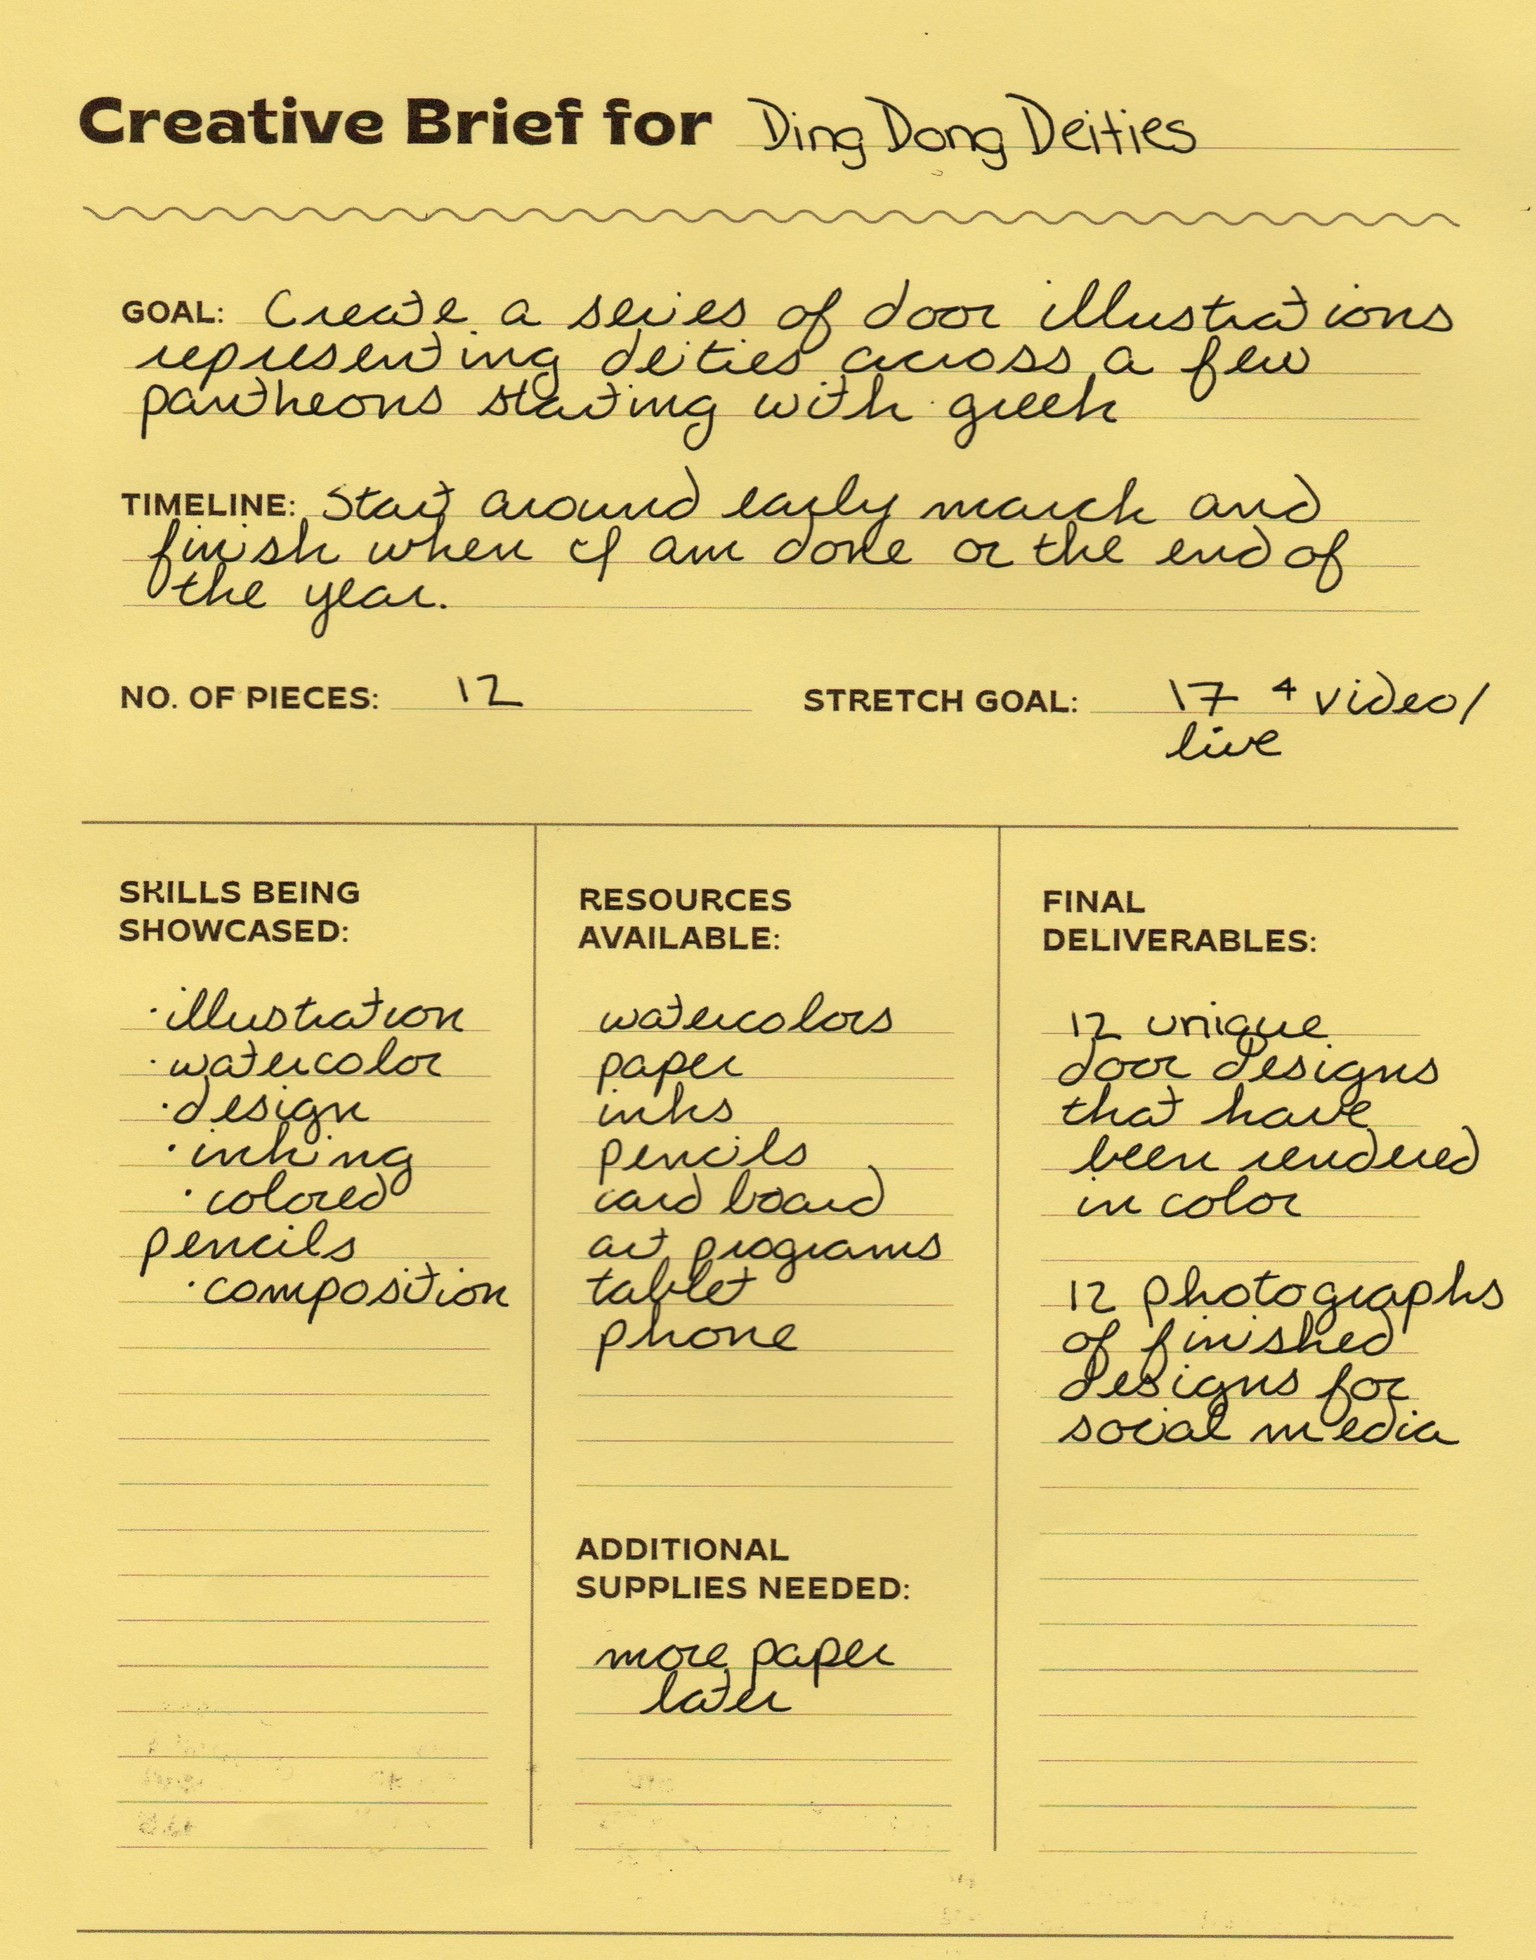 Creative Brief for Ding Dong Deities
GOAL: Create a series of door illustrations
representing deities across a few
pantheons starting with greek
TIMELINE: Start around early march and
finish when I am done or the end of
the year.
NO. OF PIECES: 12
STRETCH GOAL: 17 + video/
live
SKILLS BEING
SHOWCASED:
· illustration
· watercolor
· design
· inking
· colored
pencils
· composition
RESOURCES
AVAILABLE:
watercolors
paper
inks
pencils
card board
art programs
tablet
phone
ADDITIONAL
SUPPLIES NEEDED:
more paper
later
FINAL
DELIVERABLES:
12 unique
door designs
that have
been rendered
in color
12 photographs
of finished
designs for
social media